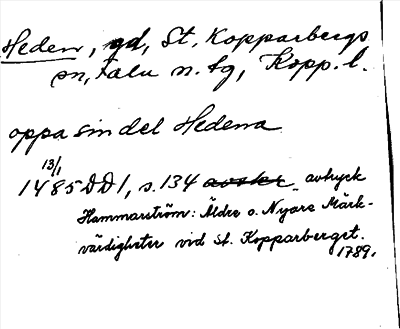 Heden, gd, St. Kopparbergs
sn, Falu n. tg, Kopp. l.
oppa sin del Hedena
13/1
1485 DD1, s. 134 avskr. avtryck
Hammarström: Äldre o. Nyare Märk-
värdigheter vid St. Kopparberget.
1789.